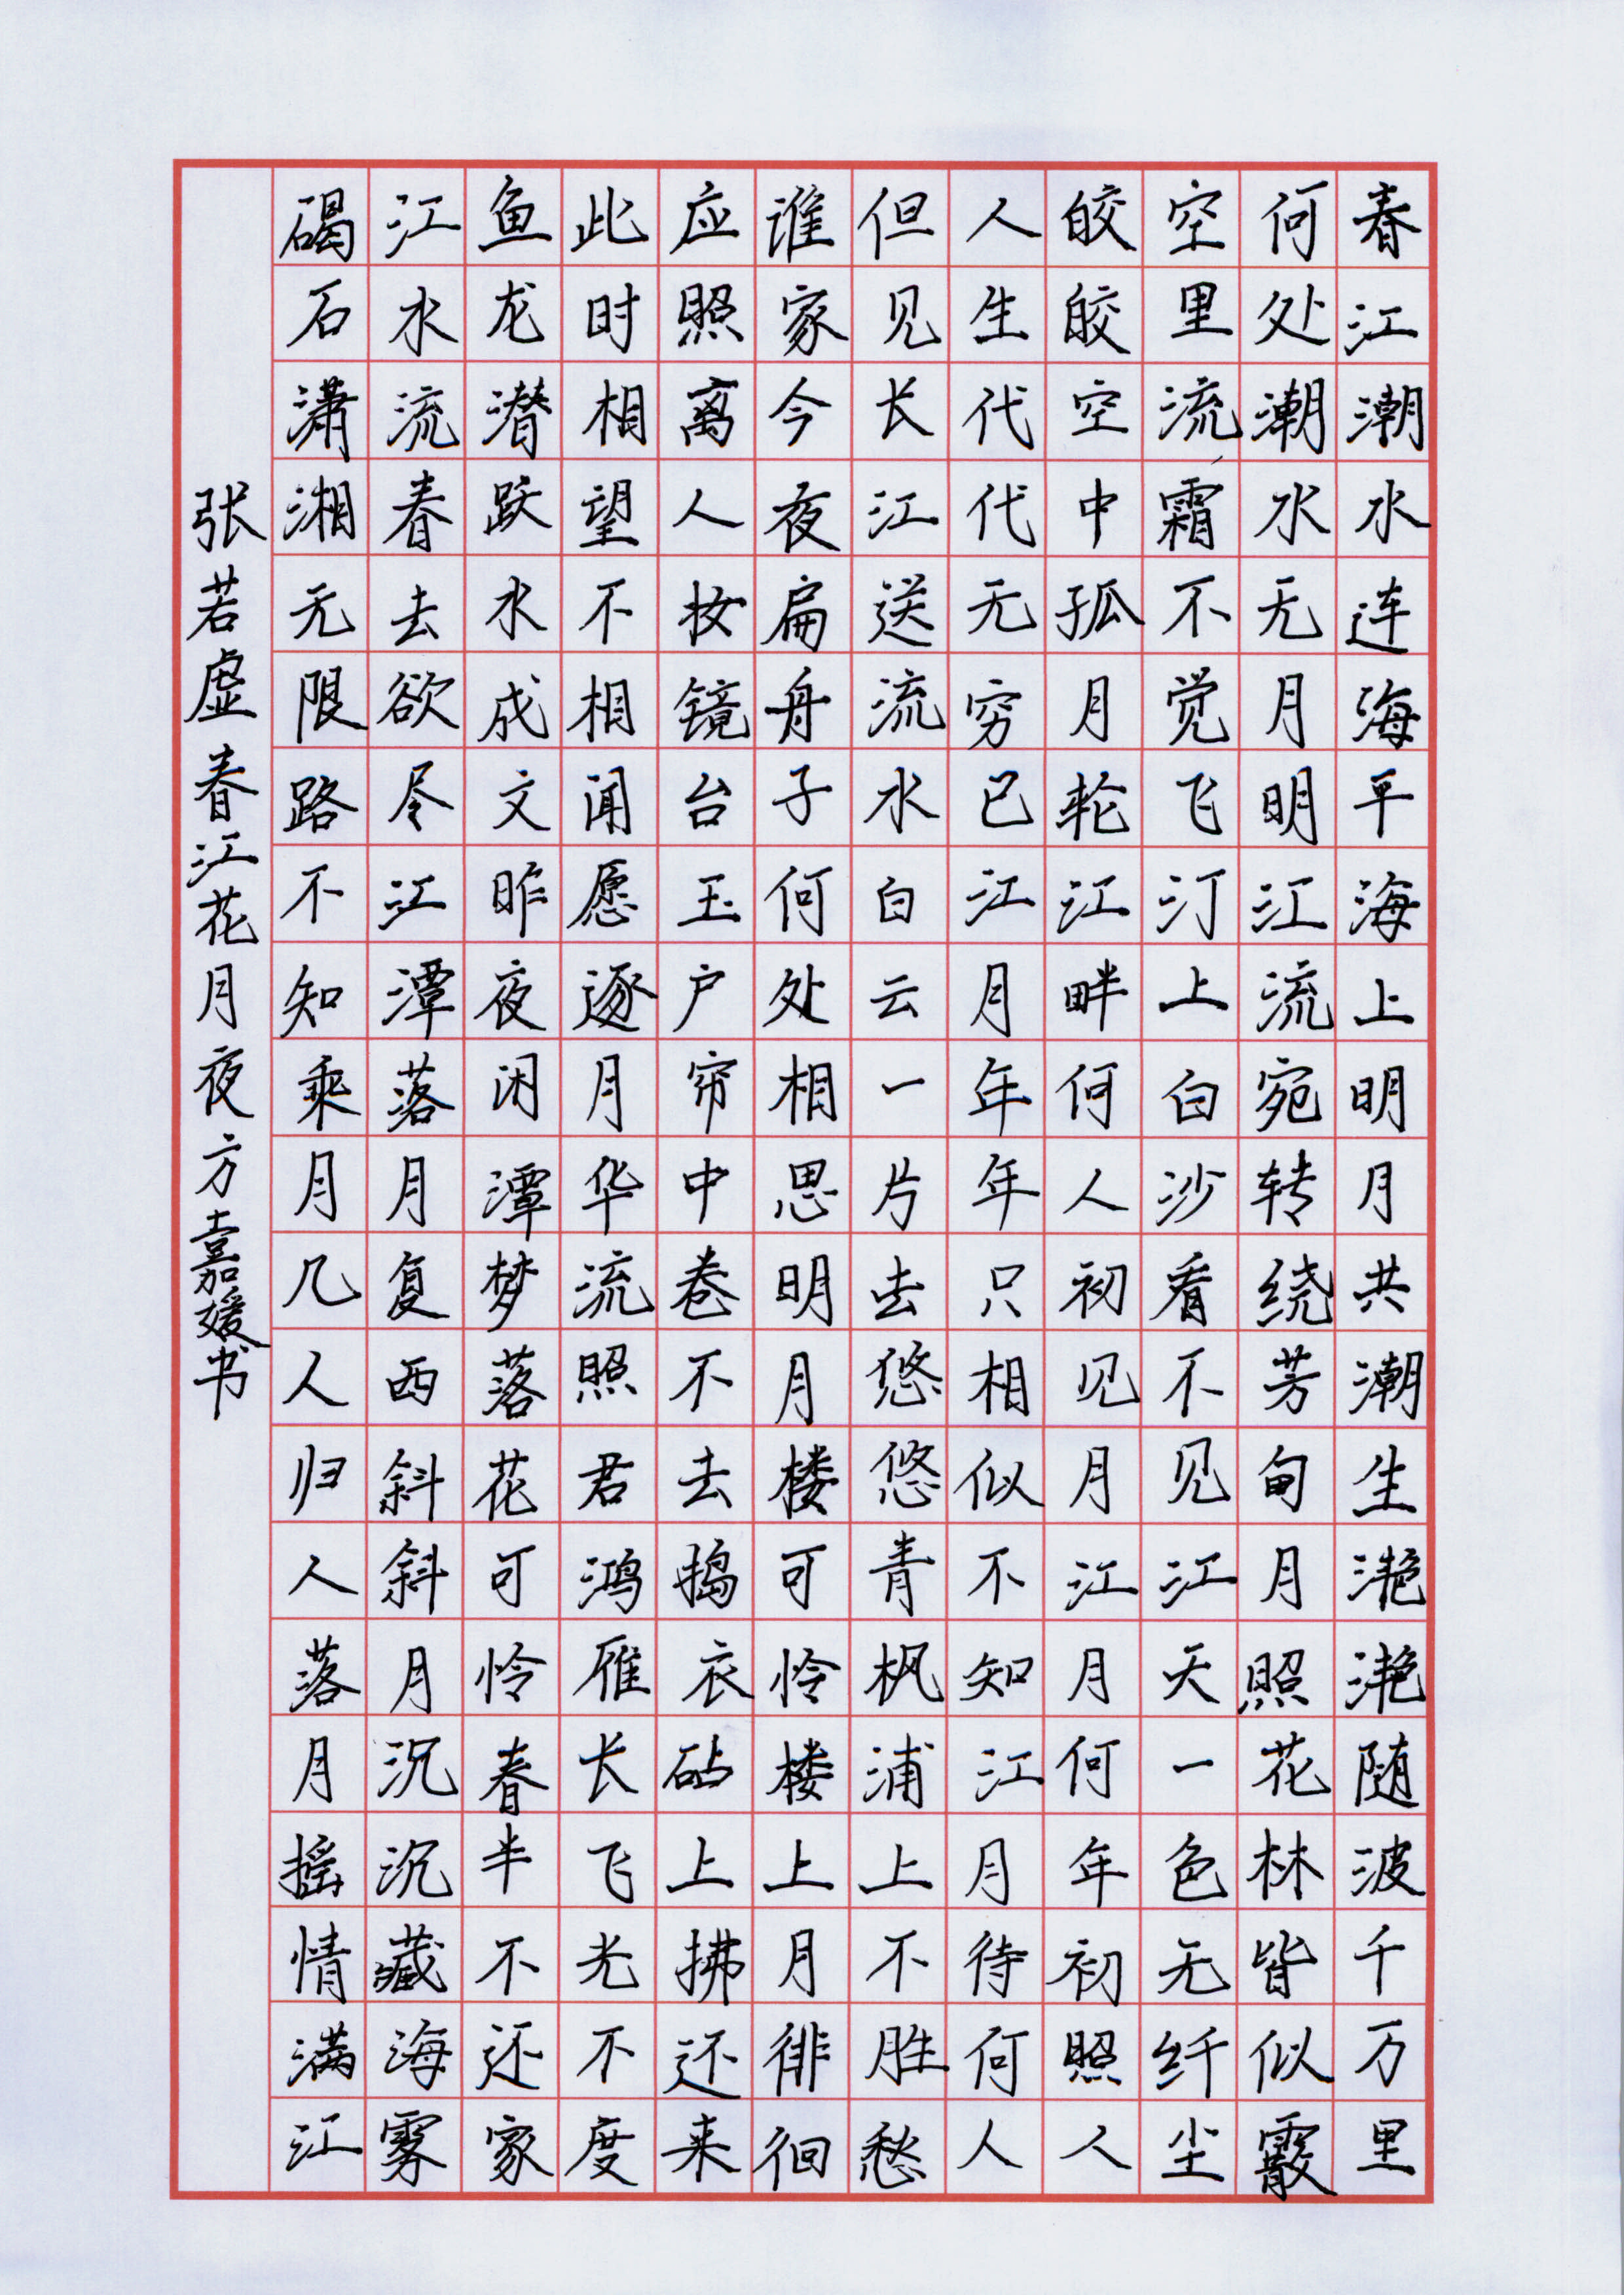 春江潮水连海平海上明月共潮生滟滟随波千万里
何处潮水无月明江流宛转绕芳甸月照花林皆似霰
空里流霜不觉飞汀上白沙看不见江天一色无纤尘
皎皎空中孤月轮江畔何人初见月江月何年初照人
人生代代无穷已江月年年只相似不知江月待何人
但见长江送流水白云一片去悠悠青枫浦上不胜愁
谁家今夜扁舟子何处相思明月楼可怜楼上月徘徊
应照离人妆镜台玉户帘中卷不去捣衣砧上拂还来
此时相望不相闻愿逐月华流照君鸿雁长飞光不度
鱼龙潜跃水成文昨夜闲潭梦落花可怜春半不还家
江水流春去欲尽江潭落月复西斜斜月沉沉藏海雾
碣石潇湘无限路不知乘月几人归人落月摇情满江
张若虚春江花月夜方嘉媛书